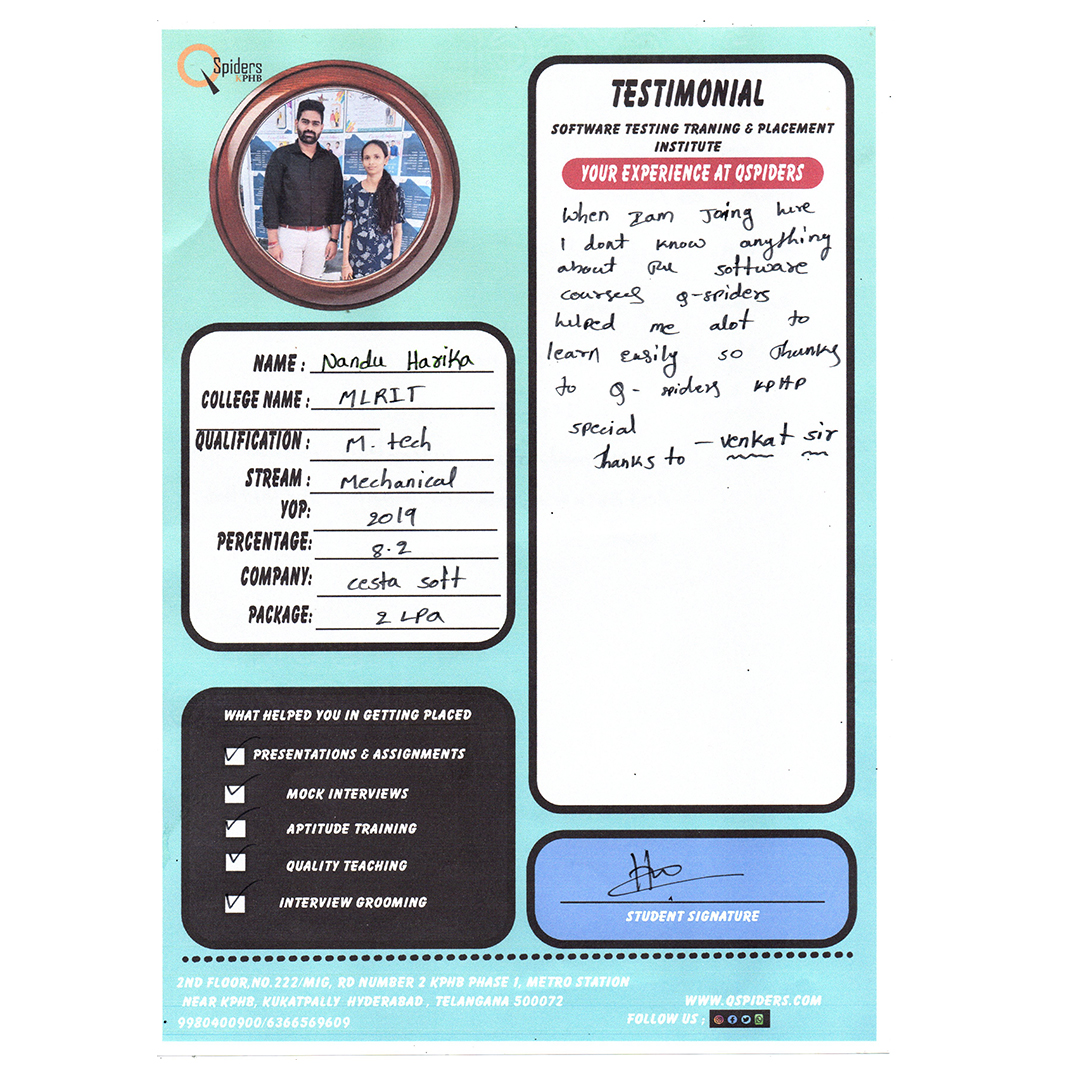 QSpiders
KPHB
NAME : Nandu Harika
COLLEGE NAME : MLRIT
QUALIFICATION : M. tech
STREAM : Mechanical
YOP: 2019
PERCENTAGE: 8.2
COMPANY: cesta soft
PACKAGE: 2 LPA
WHAT HELPED YOU IN GETTING PLACED
PRESENTATIONS & ASSIGNMENTS
MOCK INTERVIEWS
APTITUDE TRAINING
QUALITY TEACHING
INTERVIEW GROOMING
TESTIMONIAL
SOFTWARE TESTING TRANING & PLACEMENT
INSTITUTE
YOUR EXPERIENCE AT QSPIDERS
When Iam Joing here
I dont know anything
about the software
courses Q-spiders
helped me alot to
learn easily so thanks
to Q- spiders KPHP
special
Thanks to - venkat sir
STUDENT SIGNATURE
2ND FLOOR,NO.222/MIG, RD NUMBER 2 KPHB PHASE 1, METRO STATION
NEAR KPHB, KUKATPALLY HYDERABAD , TELANGANA 500072
9980400900/6366569609
WWW.QSPIDERS.COM
FOLLOW US ;